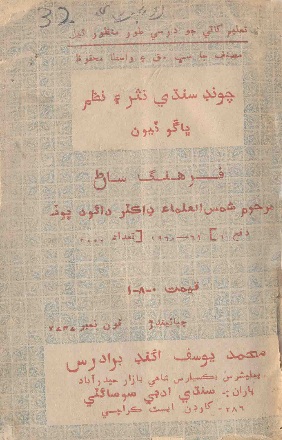 32
تعليم کاتي جو درسي طور منظور ٿيل
مصنف جا سڀ حق ۽ واسطا محفوظ
چونڊ سنڌي نثر ۽ نظم
ڀاڱو ٽيون
فرهنگ ساڻ
مرحوم شمس العلماء ڊاڪٽر دائود پوٽہ
دفع ١] [تعداد ٢٠٠٠
قيمت ٠-٨-١
ڇاپيندڙ فون نمبر
محمد يوسف ائنڊ برادرس
پبليشرس بڪسيلرس شاهي بازار حيدرآباد
پاران:- سنڌي ادبي سوسائٽي
٢٨٦- گارڊن ايسٽ ڪراچي